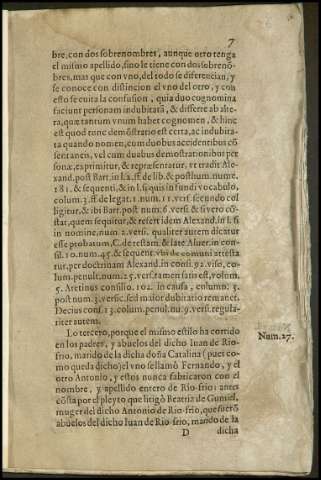 7
bre, con dos sobrenombres, aunque otro tenga
el mismo apellido, sino le tiene con dos sobrenõ-
bres, mas que con vno, del todo se diferencian, y
se conoce con distincion el vno del otro, y con
esto se euita la confusion, quia duo cognomina
faciunt personam indubitatã, & differre ab alte-
ra, quæ tantum vnum habet cognomen, & hinc
est quod tunc demõstratio est certa, ac indubita-
ta quando nomen, cum duobus accidentibus cõ
sentaneis, vel cum duabus demonstrationibus per
sonæ, exprimitur, & repræsentatur, vt tradit Ale-
xand. post Bart. in l. 2. ff. de lib. & posthum. nume.
181. & sequenti, & in l. si quis in fundi vocabulo,
colum. 3. ff. de legat. 1. num. 11. vers. secundo col
ligitur, & ibi Bart. post num. 6. vers. & si vero cõ-
stat, quem sequitur, & refert idem Alexand. in l. si
in nomine, num. 2. versi. qualiter autem dicatur
esse probatum, C. de testam. & late Aluer. in con-
sil. 10. num. 45. & sequent. vbi de communi attesta
tur, per doctrinam Alexand. in consi. 92. viso, co-
lum. penult. num. 25. vers. tamen satis est, volum.
5. Aretinus consilio. 102. in causa, column. 3.
post num. 3. versic. sed maior dubitatio remanet.
Decius cons. 13. colum. penul. nu. 9. versi. regula-
riter autem.
Lo tercero, porque el mismo estilo ha corrido
Num. 27.
en los padres, y abuelos del dicho Iuan de Rio-
frio, marido de la dicha doña Catalina (pues co-
mo queda dicho) el vno se llamò Fernando, y el
otro Antonio, y estos nunca fabricaron con el
nombre, y apellido entero de Rio-frio: antes
cõsta por el pleyto que litigò Beatriz de Gumiel,
muger del dicho Antonio de Rio-frio, que fuerõ
abuelos del dicho Iuan de Rio-frio, marido de la
D
dicha